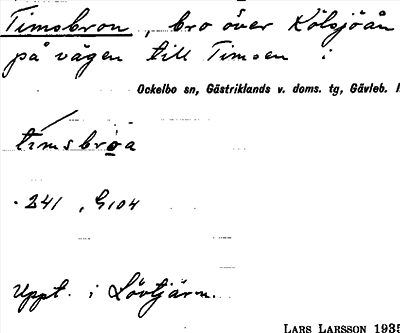 Timsbron, bro över Kölsjöån
på vägen till Timsen i
Ockelbo sn, Gästriklands v. doms. tg, Gävleb. l
tímsbrơa
241, G104
Uppt. i Lövtjärn.
LARS LARSSON 1935